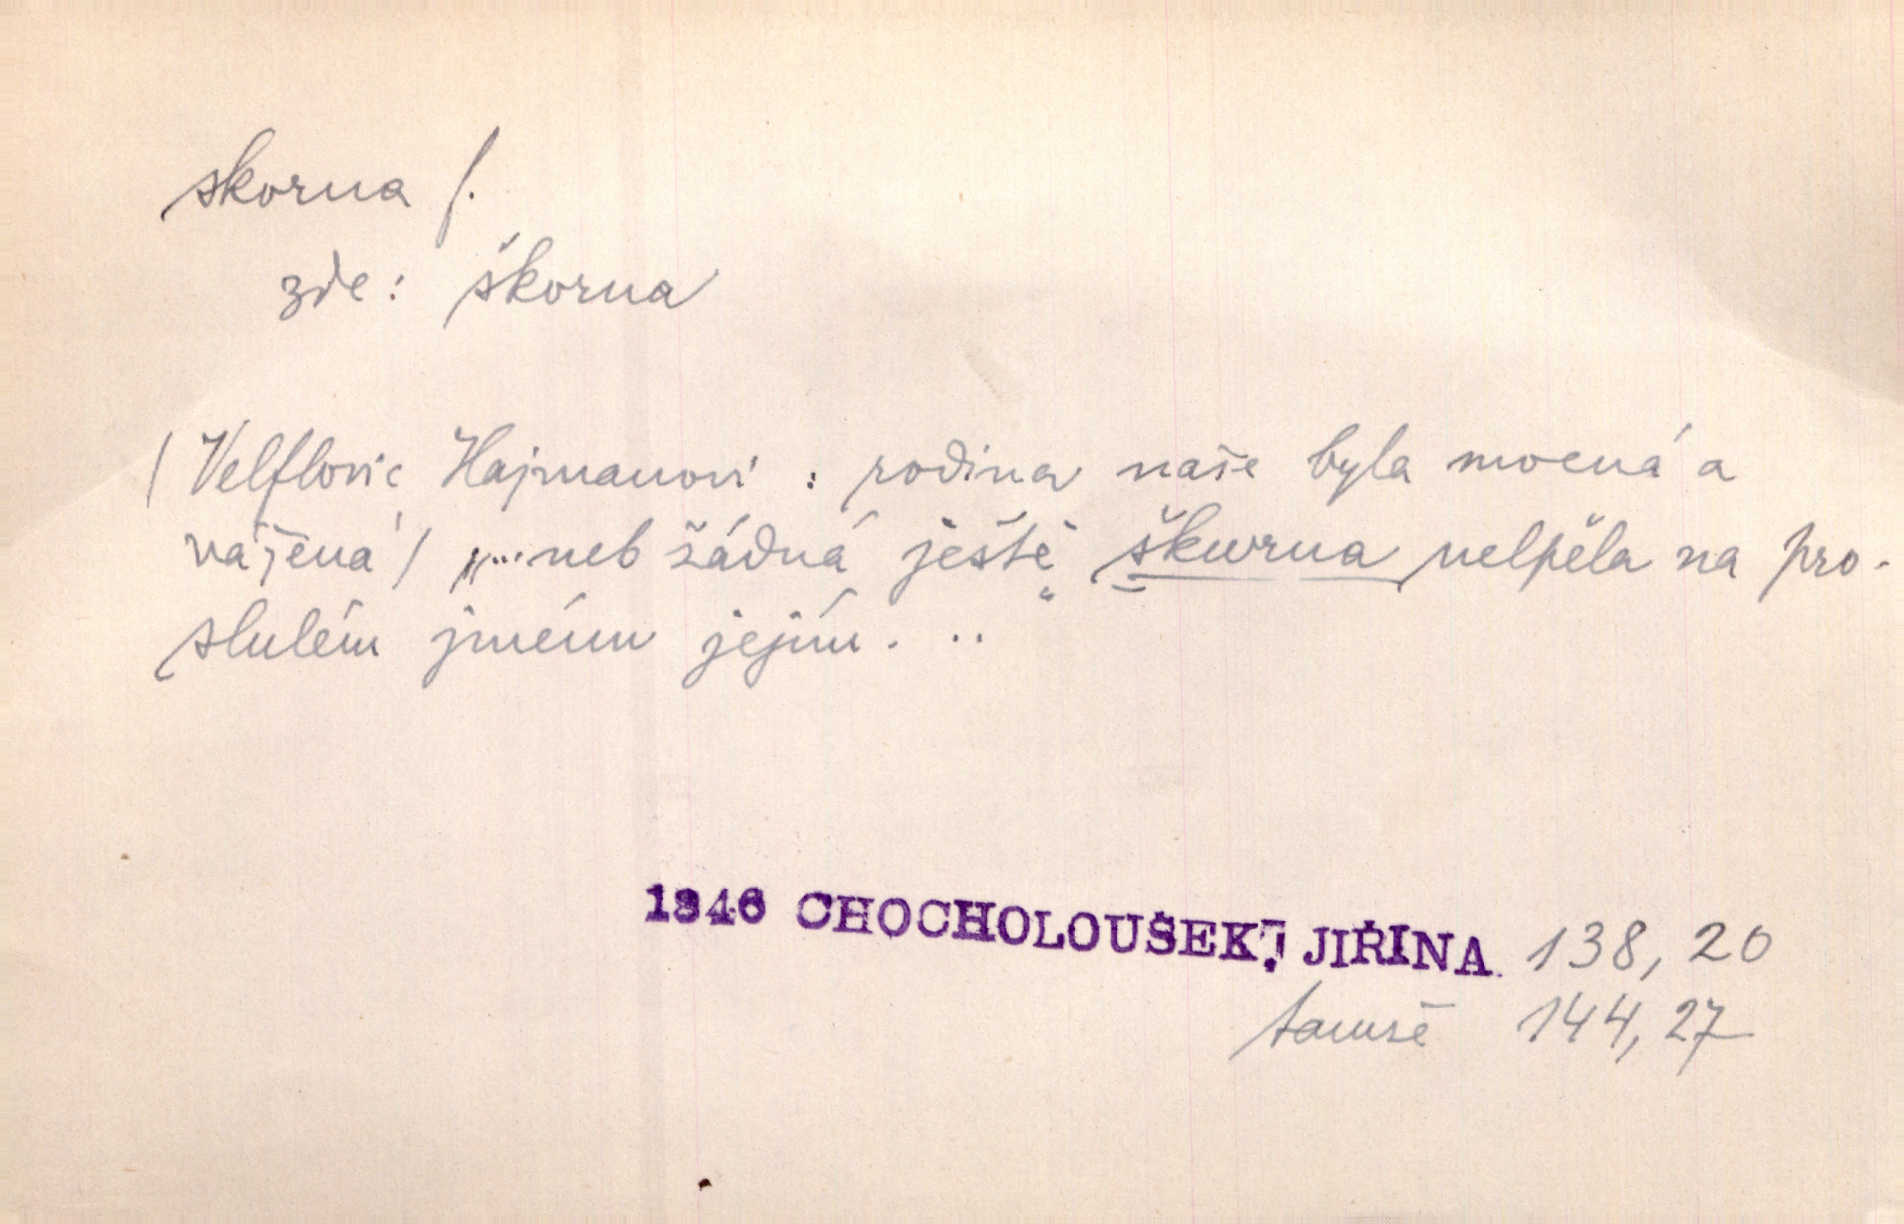 skorna f.
zde: škorna
( Velflovic Hajmanovi : rodina naše byla mocná a
vážená ) „... neb žádná ještě škwrna nelpěla na pro-
slulém jménu jejím. ..
1846 CHOCHOLOUŠEK, JIŘINA. 138, 20
tamže 144, 27